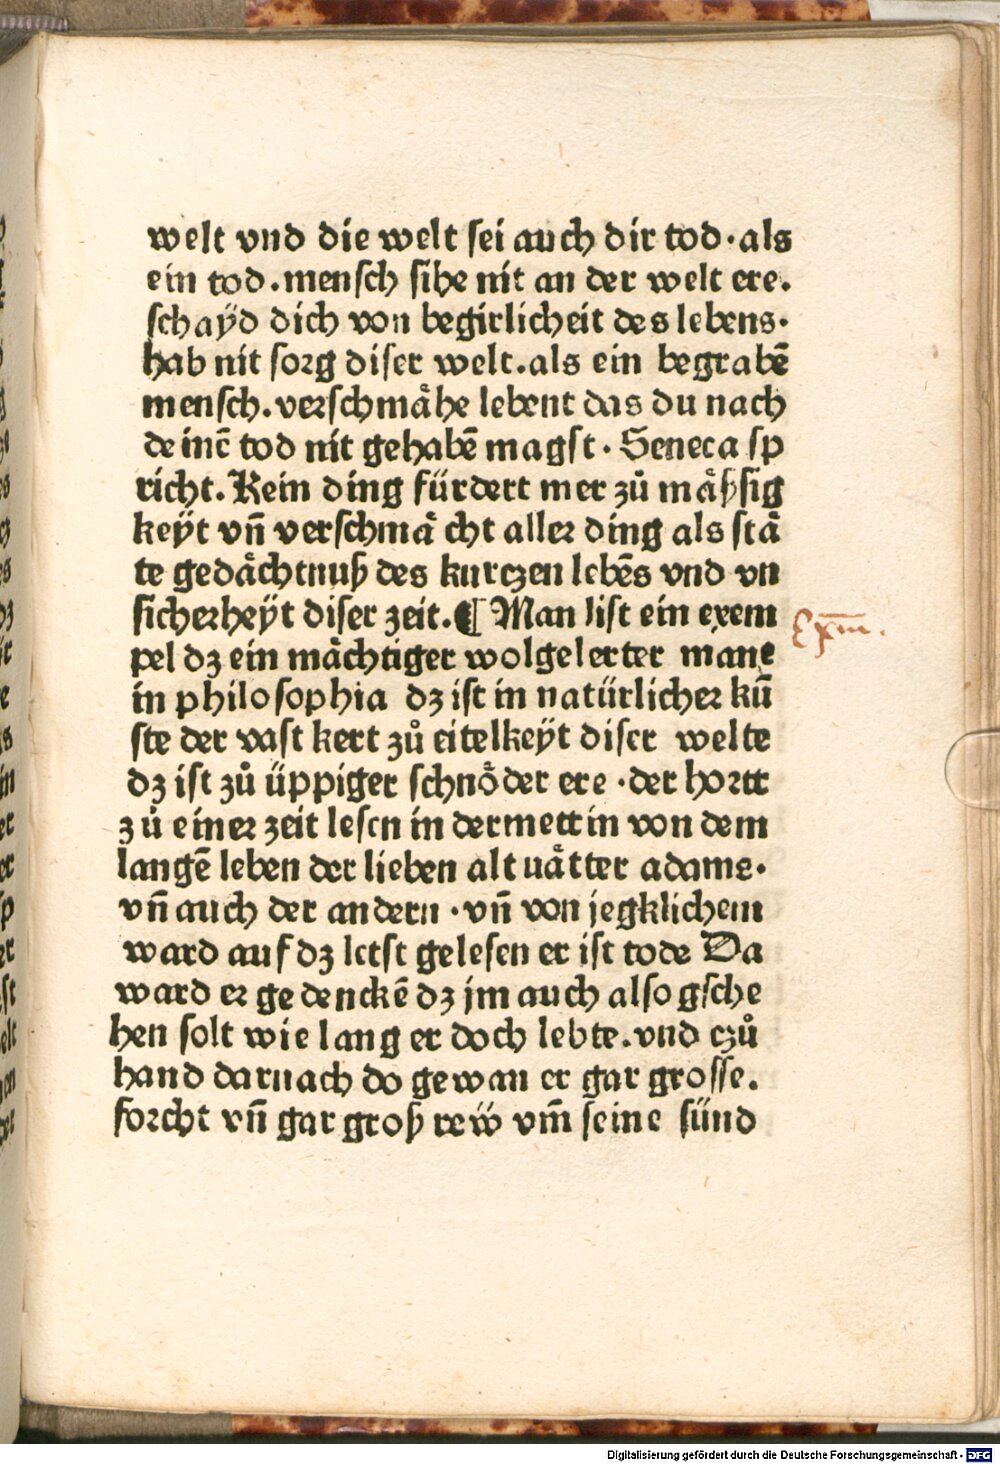 welt vnd die welt sei auch dir tod·als
ein tod.mensch sihe nit an der welt ere.
schaÿd dich von begirlicheit des lebens·
hab nit sorg diser welt.als ein begrabē
mensch.verschmaͤhe lebent das du nach
deinē tod nit gehabē magst·Seneca sp
richt.Kein ding fürdert mer zuͦ maͤßsig
keÿt vn̄ verschmaͤcht aller ding als staͤ
te gedaͤchtnuß des kurczen lebēs vnd vn
sicherheÿt diser zeit.¶Man list ein exem
Exm.
pel dz ein maͤchtiger wolgelerter mane
in philosophia dz ist in natürlicher kū
ste der vast kert zuͦ eitelkeÿt diser welte
dz ist zuͦ üppiger schnoͤder ere·der hortt
zuͦ einer zeit lesen in dermettin von dem
langē leben der lieben altuaͤtter adams·
vn̄ auch der andern·vn̄ von jegklichem
ward auf dz letst gelesen er ist tode Da
ward er gedenckē dz jm auch also gsche
hen solt wie lang er doch lebte.vnd czuͦ
hand darnach do gewan er gar grosse.
forcht vn̄ gar groß reẅ vm̄ seine sünd
Digitalisierung gefördert durch die Deutsche Forschungsgemeinschaft - DFG